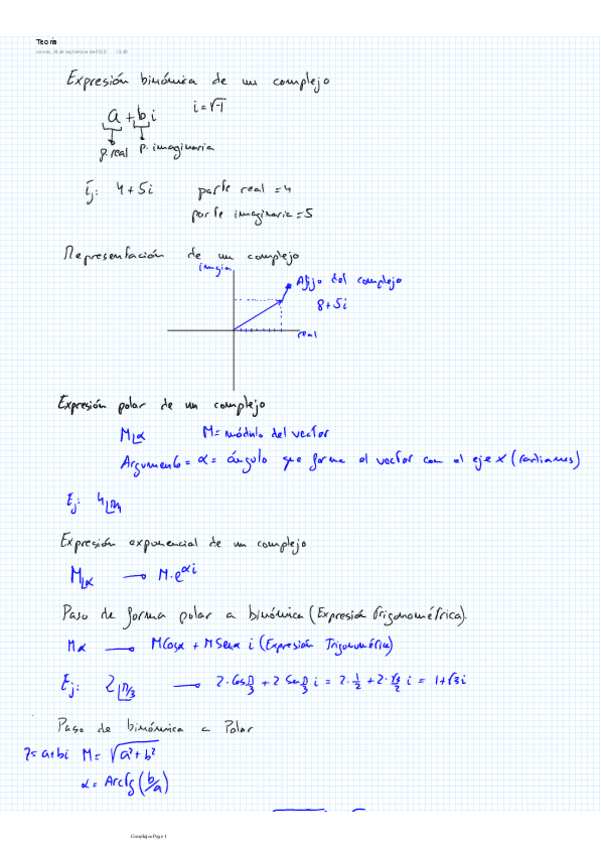 Teoría
Expresión binómica de un complejo
a + bi i = √-1
p. real p. imaginaria
Ej: 4 + 5i parte real = 4
parte imaginaria = 5
Representación de un complejo
Afijo del complejo
8 + 5i
real
Expresión polar de un complejo
M∟α M = módulo del vector
Argumento = α = ángulo que forma el vector con el eje x (radianes)
Ej:
Expresión exponencial de un complejo
M∟α → M·e^αi
Paso de forma polar a binómica (Expresión Trigonométrica).
Mα → M Cosα + M Senα i (Expresión Trigonométrica)
Ej: 2∟π/3 → 2·Cos π/3 + 2 Sen π/3 i = 2·1/2 + 2·√3/2 i = 1+√3i
Paso de binómica a Polar
z = a+bi M = √a²+b²
α = Arctg (b/a)
Complejos Page 1